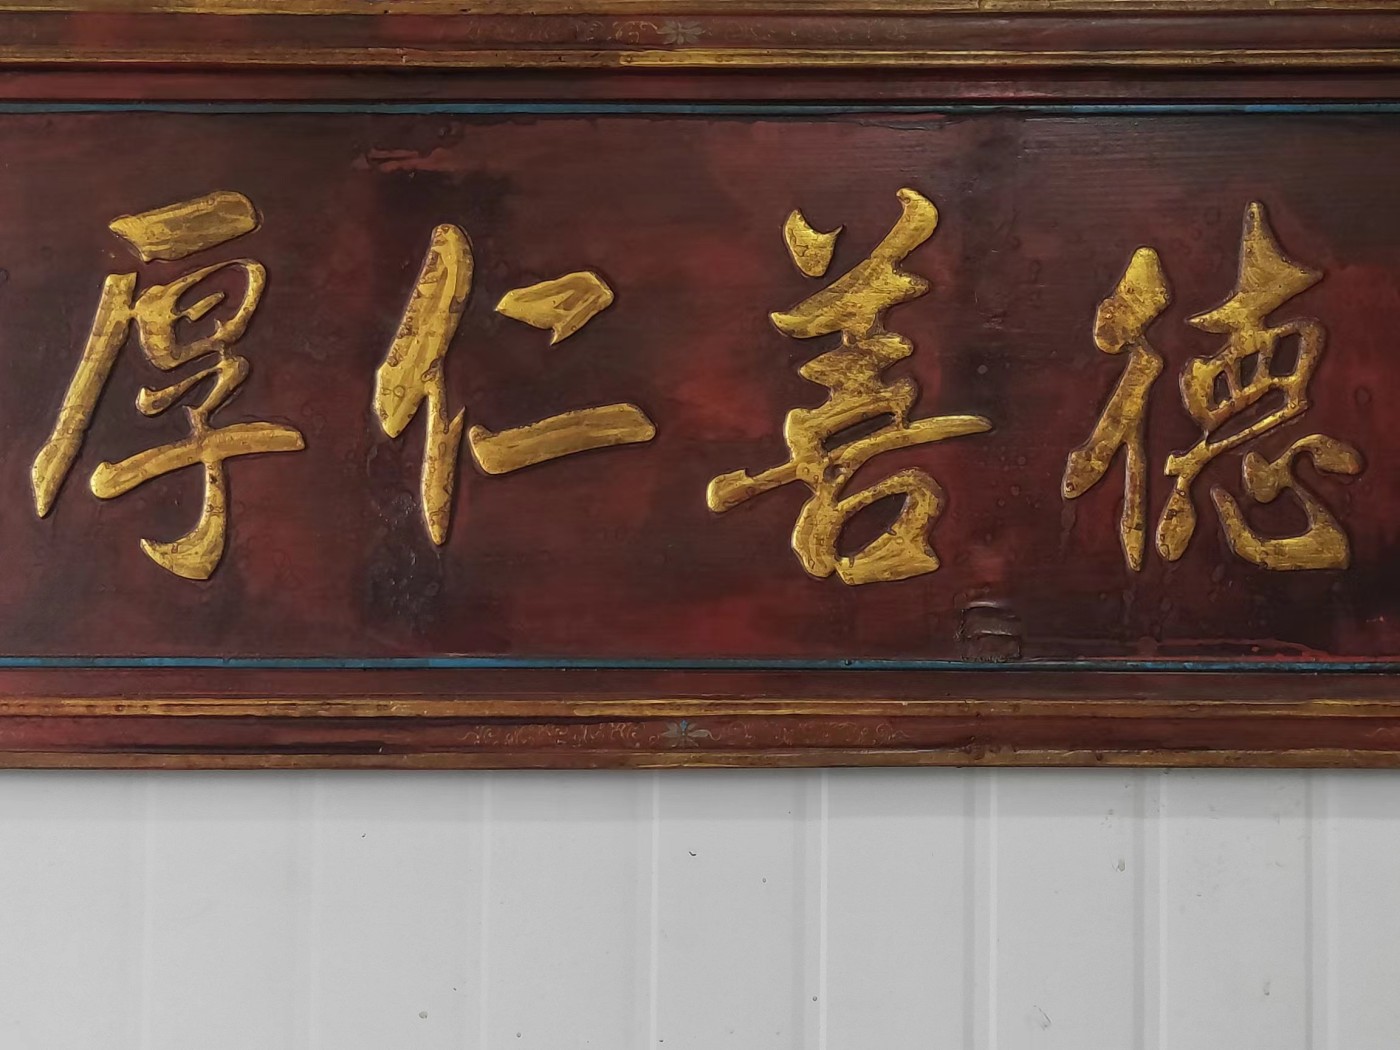 德善仁厚